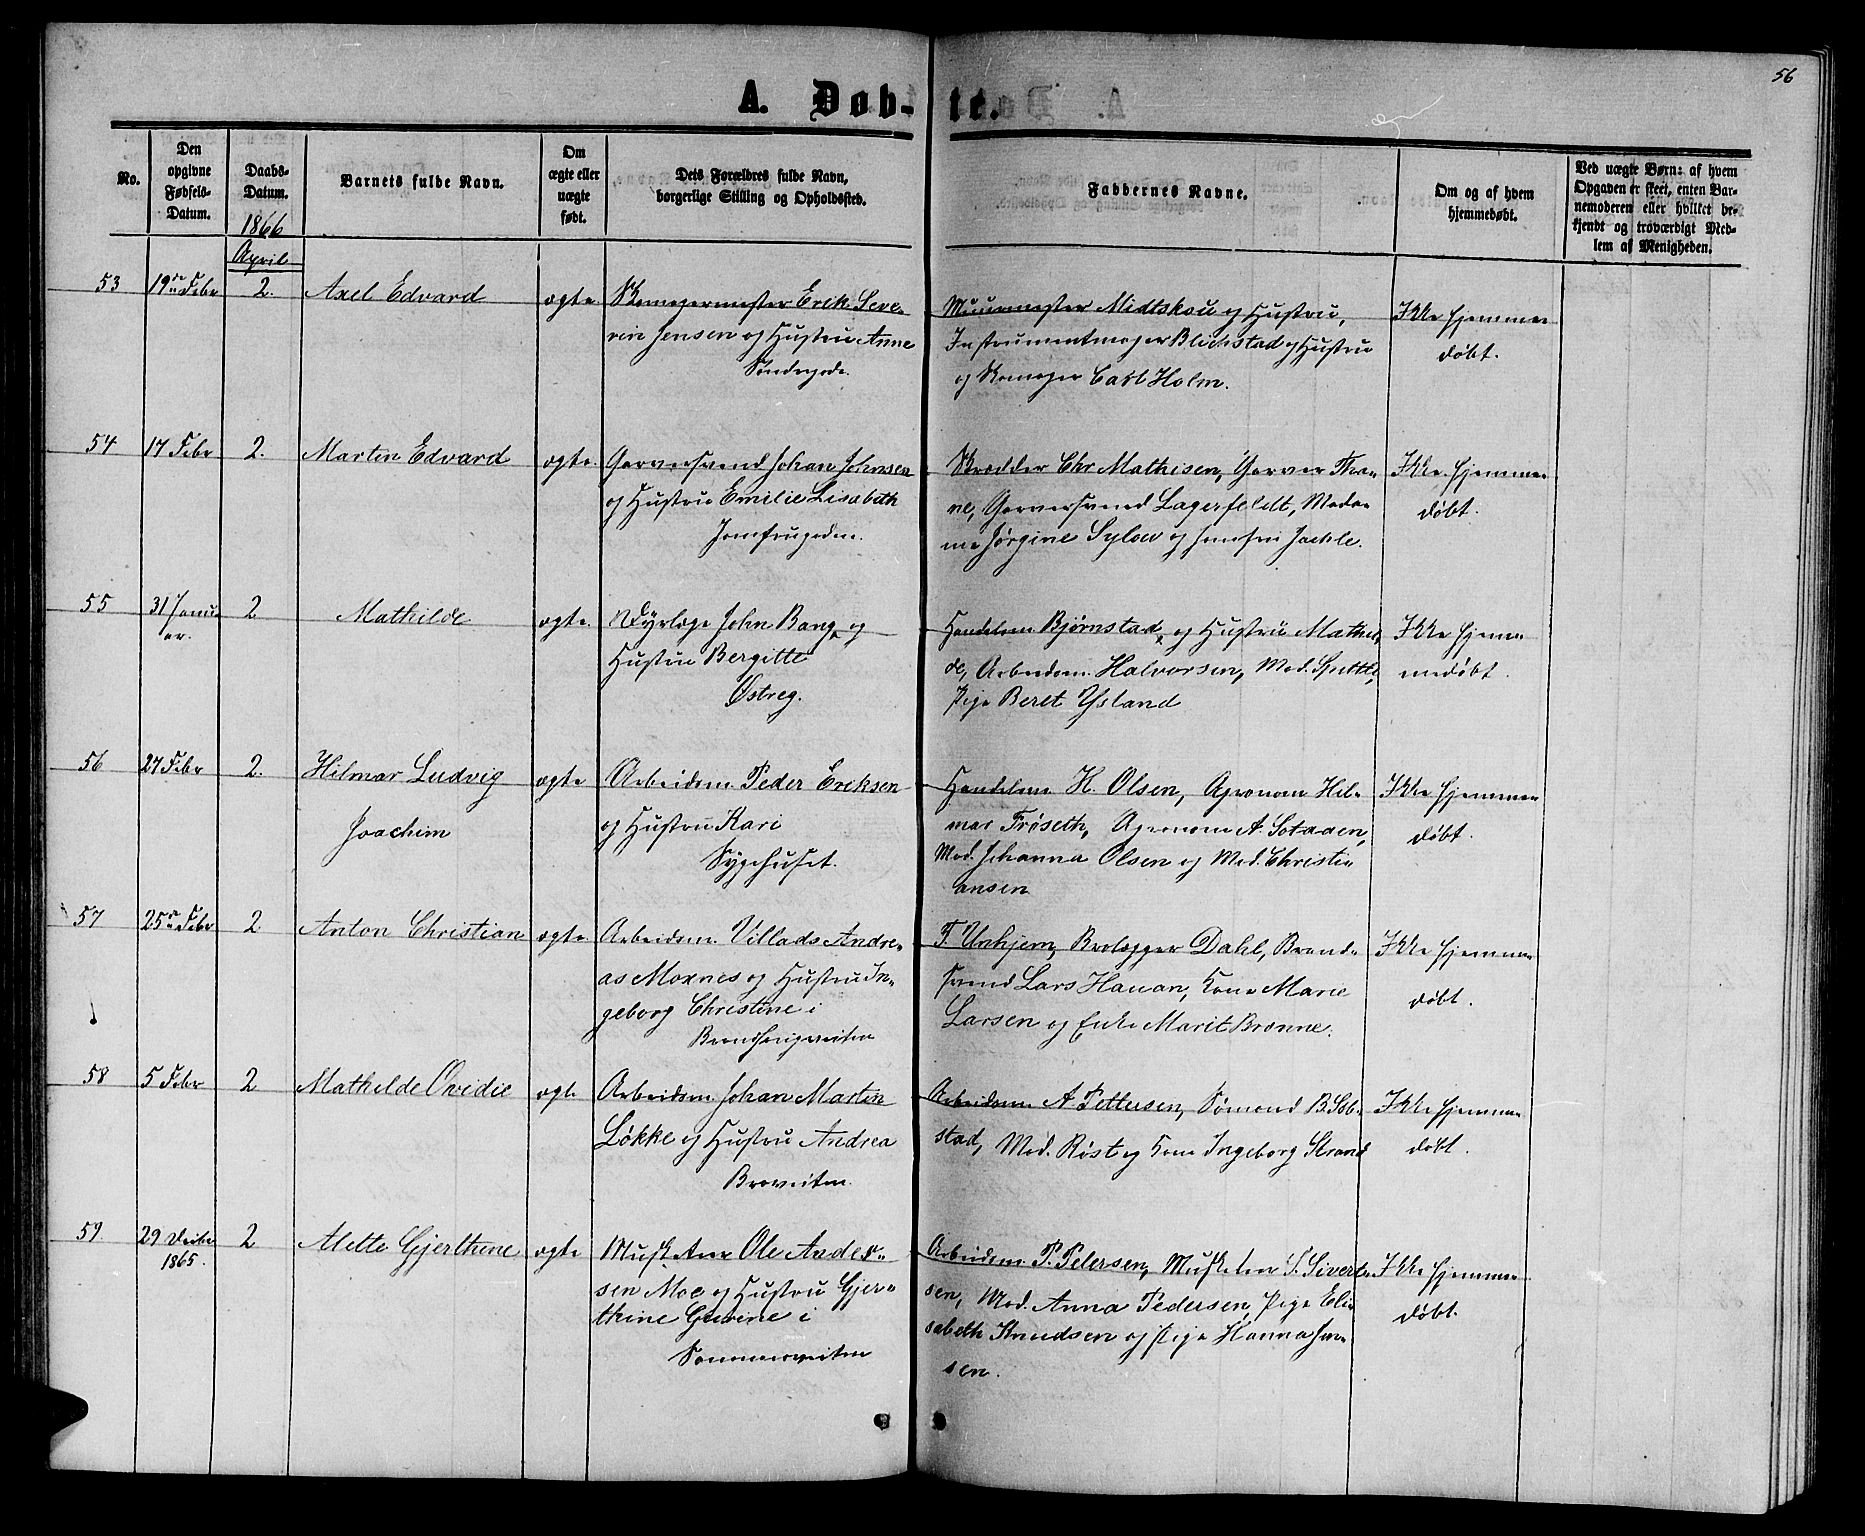 56
A. Døb-te.
No.
Den opgivne Fødsels-Datum.
Daabs-Datum.
Barnets fulde Navn.
Om ægte eller uægte født.
Dets Forældres fulde Navn, borgerlige Stilling og Opholdssted.
Faddernes Navne.
Om og af hvem hjemmedøbt.
Ved uægte Børn: af hvem Opgaven er skeet, enten Barnemoderen eller hvilket bekjendt og troværdigt Medlem af Menigheden.
1866
April
53 19de Febr 2. Axel Edvard ægte Skomagermester Erik Seve-
rin Jensen og Hustru Anne
Søndregade.
Muurmester Midtskou og Hustru,
Instrumentmager Blichstad og Hustru
og Skomager Carl Holm.
Ikke hjemme
døbt.
54 17 Febr 2. Martin Edvard ægte. Garversvend Johan Johnsen
og Hustru Emilie Lisabeth
Jomfrugaden.
Skrædder Chr Mathisen, Garver Tha-
ne, Garversvend Lagerfeldt, Mada-
me Jørgine Sylow og Jomfru Jackle.
Ikke hjemme
døbt.
55 31 Janu-
ar. 2 Mathilde ægte. Dyrlæge John Bang og
Hustru Bergitte
Østreg.
Handelsm Bjørnstad og Hustru Mathil-
de, Arbeidsm. Halvorsen, Mad.
Pige Beret Ysland
Ikke hjem-
medøbt.
56 27 Febr 2. Hilmar Ludvig
Joachim
ægte Arbeidsm. Peder Eriksen
og Hustru Kari
Sygehuset.
Handelsm K. Olsen, Agronom Hil-
mar Trøseth, Agronom A. Sotaaen,
Mad. Johanna Olsen og Mad. Christi-
ansen
Ikke hjemme
døbt.
57 25de Febr 2 Anton Christian ægte. Arbeidsm. Villads Andre-
as Moxnes og Hustru In-
geborg Christine i
Brandhaugveiten
T. Unhjem, Brolægger Dahl, Brand-
svend Lars Hauan, Kone Marie
Larsen og Enke Marit Brønne.
Ikke hjemme
døbt.
58 5 Febr 2 Mathilde Ovidie ægte Arbeidsm. Johan Martin
Løkke og Hustru Andrea
Broveiten.
Arbeidsm. A Pettersen, Sømand B Sob-
stad, Mad. Røst og Kone Ingeborg Strand
Ikke hjemme
døbt.
59. 29 Decbr
1865. 2 Mette Gjerthine ægte Musketeer Ole Ander-
sen Moe og Hustru Gjer-
thine Gurine i
Sommerveiten
Arbeidsm. P. Petersen, Musketeer S. Sivert-
sen, Mad. Anna Pedersen, Pige Eli-
sabeth Knudsen og Pige Hanna Jen-
sen.
Ikke hjemme
døbt.